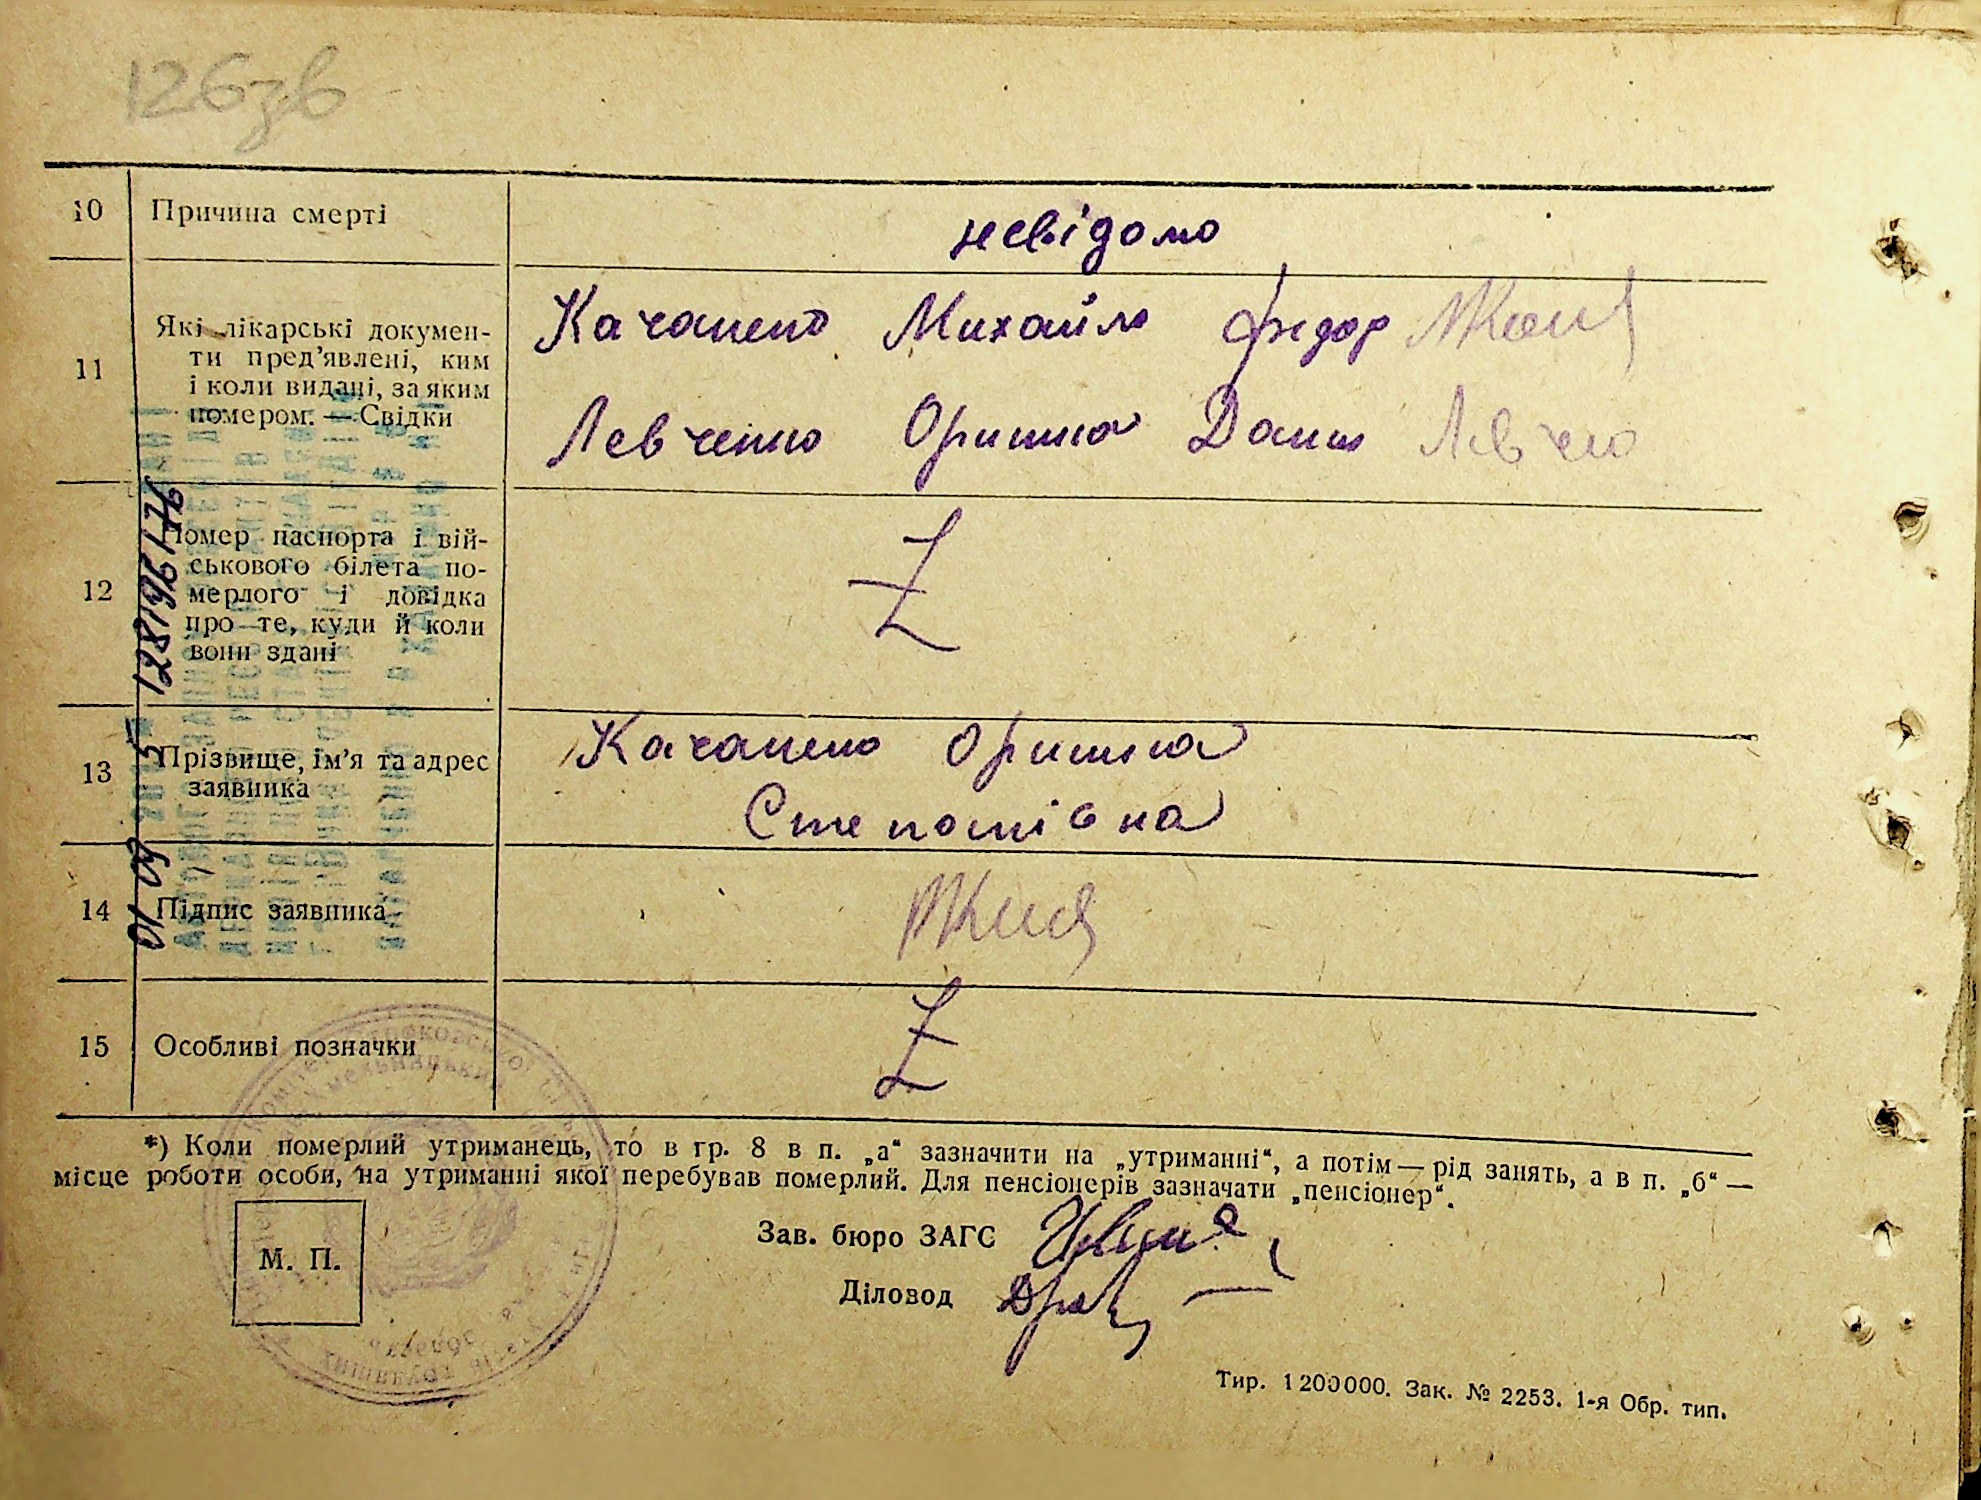 126зв
10 Причина смерті невідомо
11 Які лікарські докумен-
ти пред'явлені, ким
і коли видані, за яким
номером. — Свідки
Качаненко Михайло Федор
Левченко Оришка Данил
12 Номер паспорта і вій-
ськового білета по-
мерлого і довідка
про те, куди й коли
вони здані
Z
13 Прізвище, ім'я та адрес
заявника
Качаненко Оришка
Степанівна
14 Підпис заявника
15 Особливі позначки
Z
*) Коли померлий утриманець, то в гр. 8 в п. „а“ зазначити на „утриманні“, а потім — рід занять, а в п. „б“ —
місце роботи особи, на утриманні якої перебував померлий. Для пенсіонерів зазначати „пенсіонер“.
М. П.
Зав. бюро ЗАГС
Діловод
Тир. 1200000. Зак. № 2253. 1-я Обр. тип.